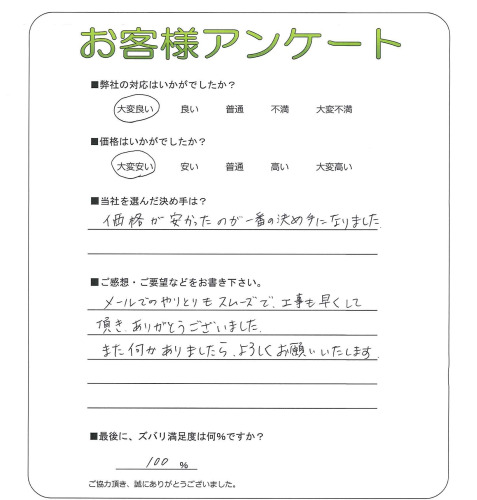 お客様アンケート
■弊社の対応はいかがでしたか？
大変良い 良い 普通 不満 大変不満
■価格はいかがでしたか？
大変安い 安い 普通 高い 大変高い
■当社を選んだ決め手は？
価格が安かったのが一番の決め手になりました.
■ご感想・ご要望などをお書き下さい。
メールでのやりとりもスムーズで、工事も早くして
頂き、ありがとうございました.
また何かありましたら、よろしくお願いいたします.
■最後に、ズバリ満足度は何%ですか？
100 %
ご協力頂き、誠にありがとうございました。